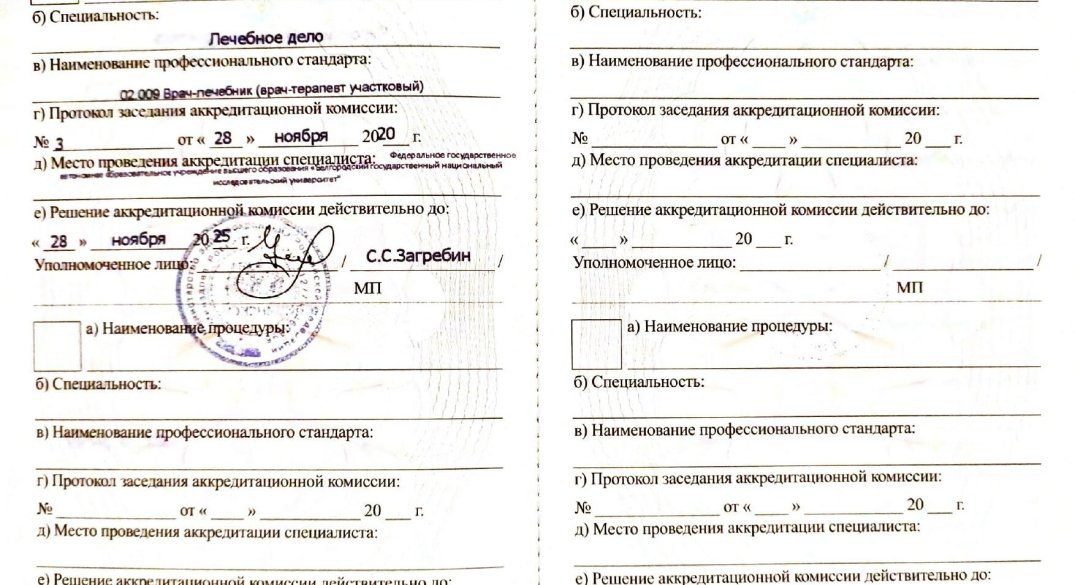 б) Специальность:
Лечебное дело
в) Наименование профессионального стандарта:
02.009 Врач-лечебник (врач-терапевт участковый)
г) Протокол заседания аккредитационной комиссии:
№ 3 от « 28 » ноября 2020 г.
д) Место проведения аккредитации специалиста: Федеральное государственное
автономное образовательное учреждение высшего образования «Белгородский государственный национальный
исследовательский университет"
е) Решение аккредитационной комиссии действительно до:
« 28 » ноября 2025 г.
Уполномоченное лицо: / С.С.Загребин /
МП
а) Наименование процедуры:
б) Специальность:
в) Наименование профессионального стандарта:
г) Протокол заседания аккредитационной комиссии:
№ от « » 20 г.
д) Место проведения аккредитации специалиста:
е) Решение аккредитационной комиссии действительно до:
б) Специальность:
в) Наименование профессионального стандарта:
г) Протокол заседания аккредитационной комиссии:
№ от « » 20 г.
д) Место проведения аккредитации специалиста:
е) Решение аккредитационной комиссии действительно до:
« » 20 г.
Уполномоченное лицо: / /
МП
а) Наименование процедуры:
б) Специальность:
в) Наименование профессионального стандарта:
г) Протокол заседания аккредитационной комиссии:
№ от « » 20 г.
д) Место проведения аккредитации специалиста:
е) Решение аккредитационной комиссии действительно до: